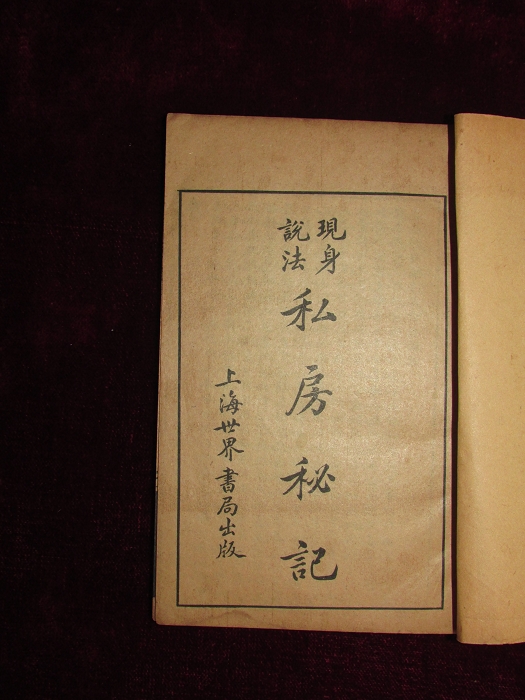 現身
説法
私房秘記
上海世界書局出版